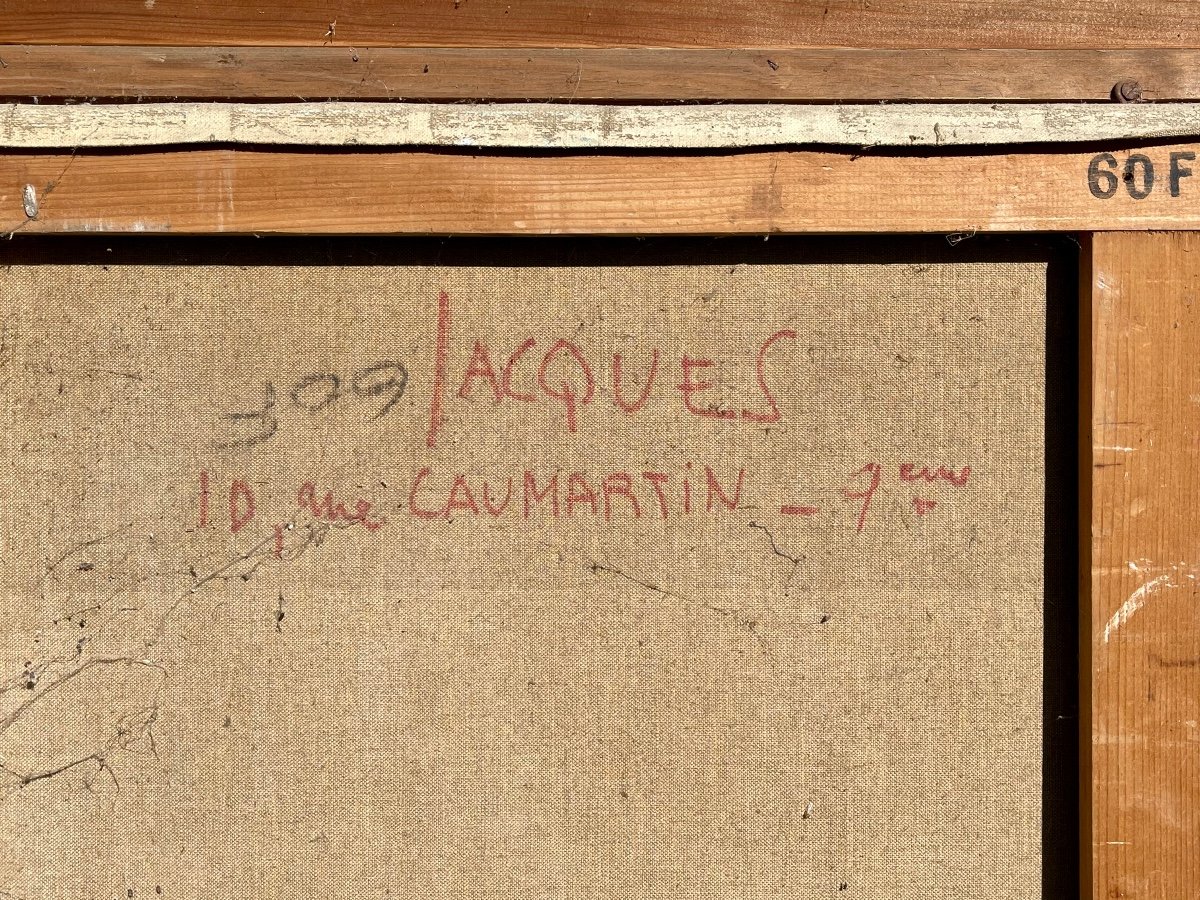 60F
JACQUES
60F
10, rue CAUMARTIN - 9eme